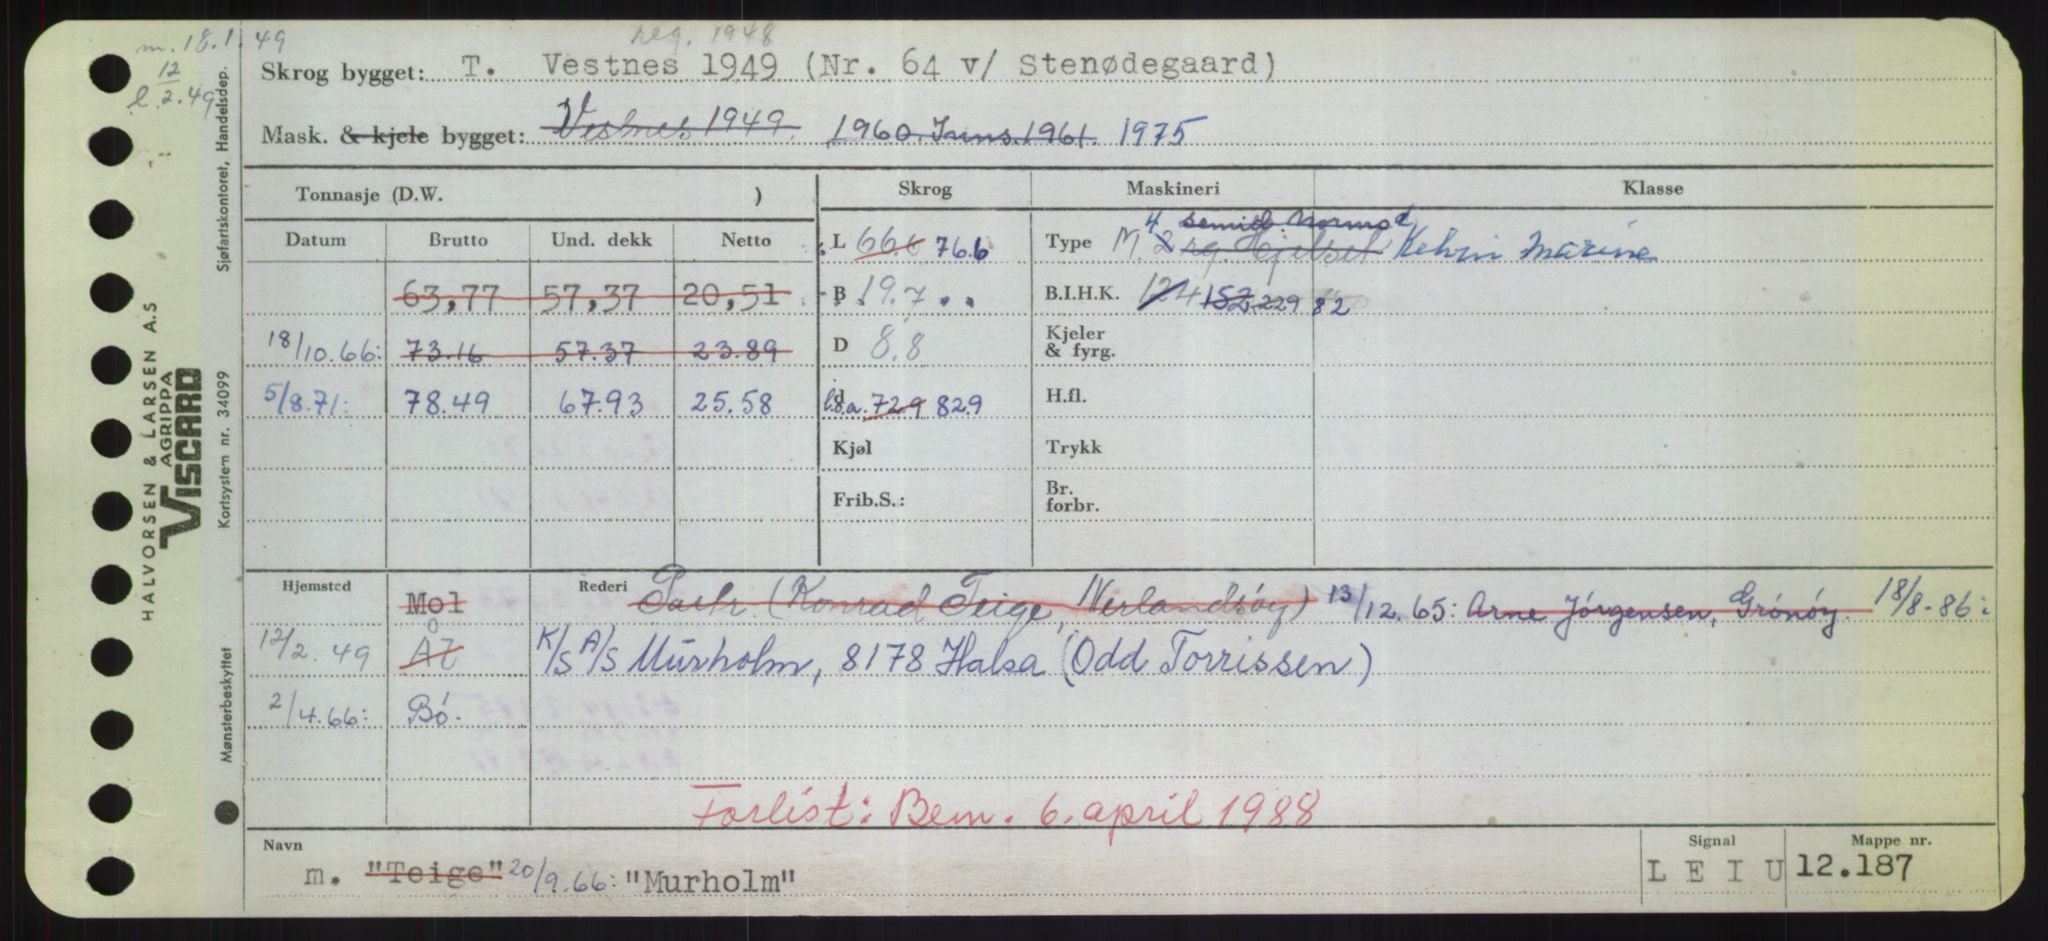 m. 18.1.49
12
l. 2.49
reg. 1948
Skrog bygget: T. Vestnes 1949 (Nr. 64 v/ Stenødegaard)
Mask. & kjele bygget: Vestnes 1949 1960. Inns. 1961. 1975
Tonnasje (D.W. )
Skrog Maskineri Klasse
Datum Brutto Und. dekk Netto
63,77 57,37 20,51
18/10.66: 73.16 57.37 23.89
5/8.71: 78.49 67.93 25.58
L 66.6 76.6
B 19.7
D 8.8
d l.o.a. 729 829
Kjøl
Frib.S.:
4 semid. Normo
Type M. 2 rg. Hjelset Kelvin Marine
B.I.H.K. 124 152 229 82
Kjeler
& fyrg.
H.fl.
Trykk
Br.
forbr.
Hjemsted Mol Rederi Partr. (Konrad Teige, Nerlandsöy) 13/12.65: Arne Jörgensen, Grönöy. 18/8-86:
12/2.49 Ål K/S A/S Murholm, 8178 Halsa (Odd Torrissen)
2/4.66: Bö.
Forlist: Bem. 6. april 1988
Navn Signal Mappe nr.
m. "Teige" 20/9.66: "Murholm" L E I U 12.187
Sjøfartskontoret, Handelsdep.
Kortsystem nr. 34099
Mønsterbeskyttet
HALVORSEN & LARSEN A.S
AGRIPPA
VISCARD